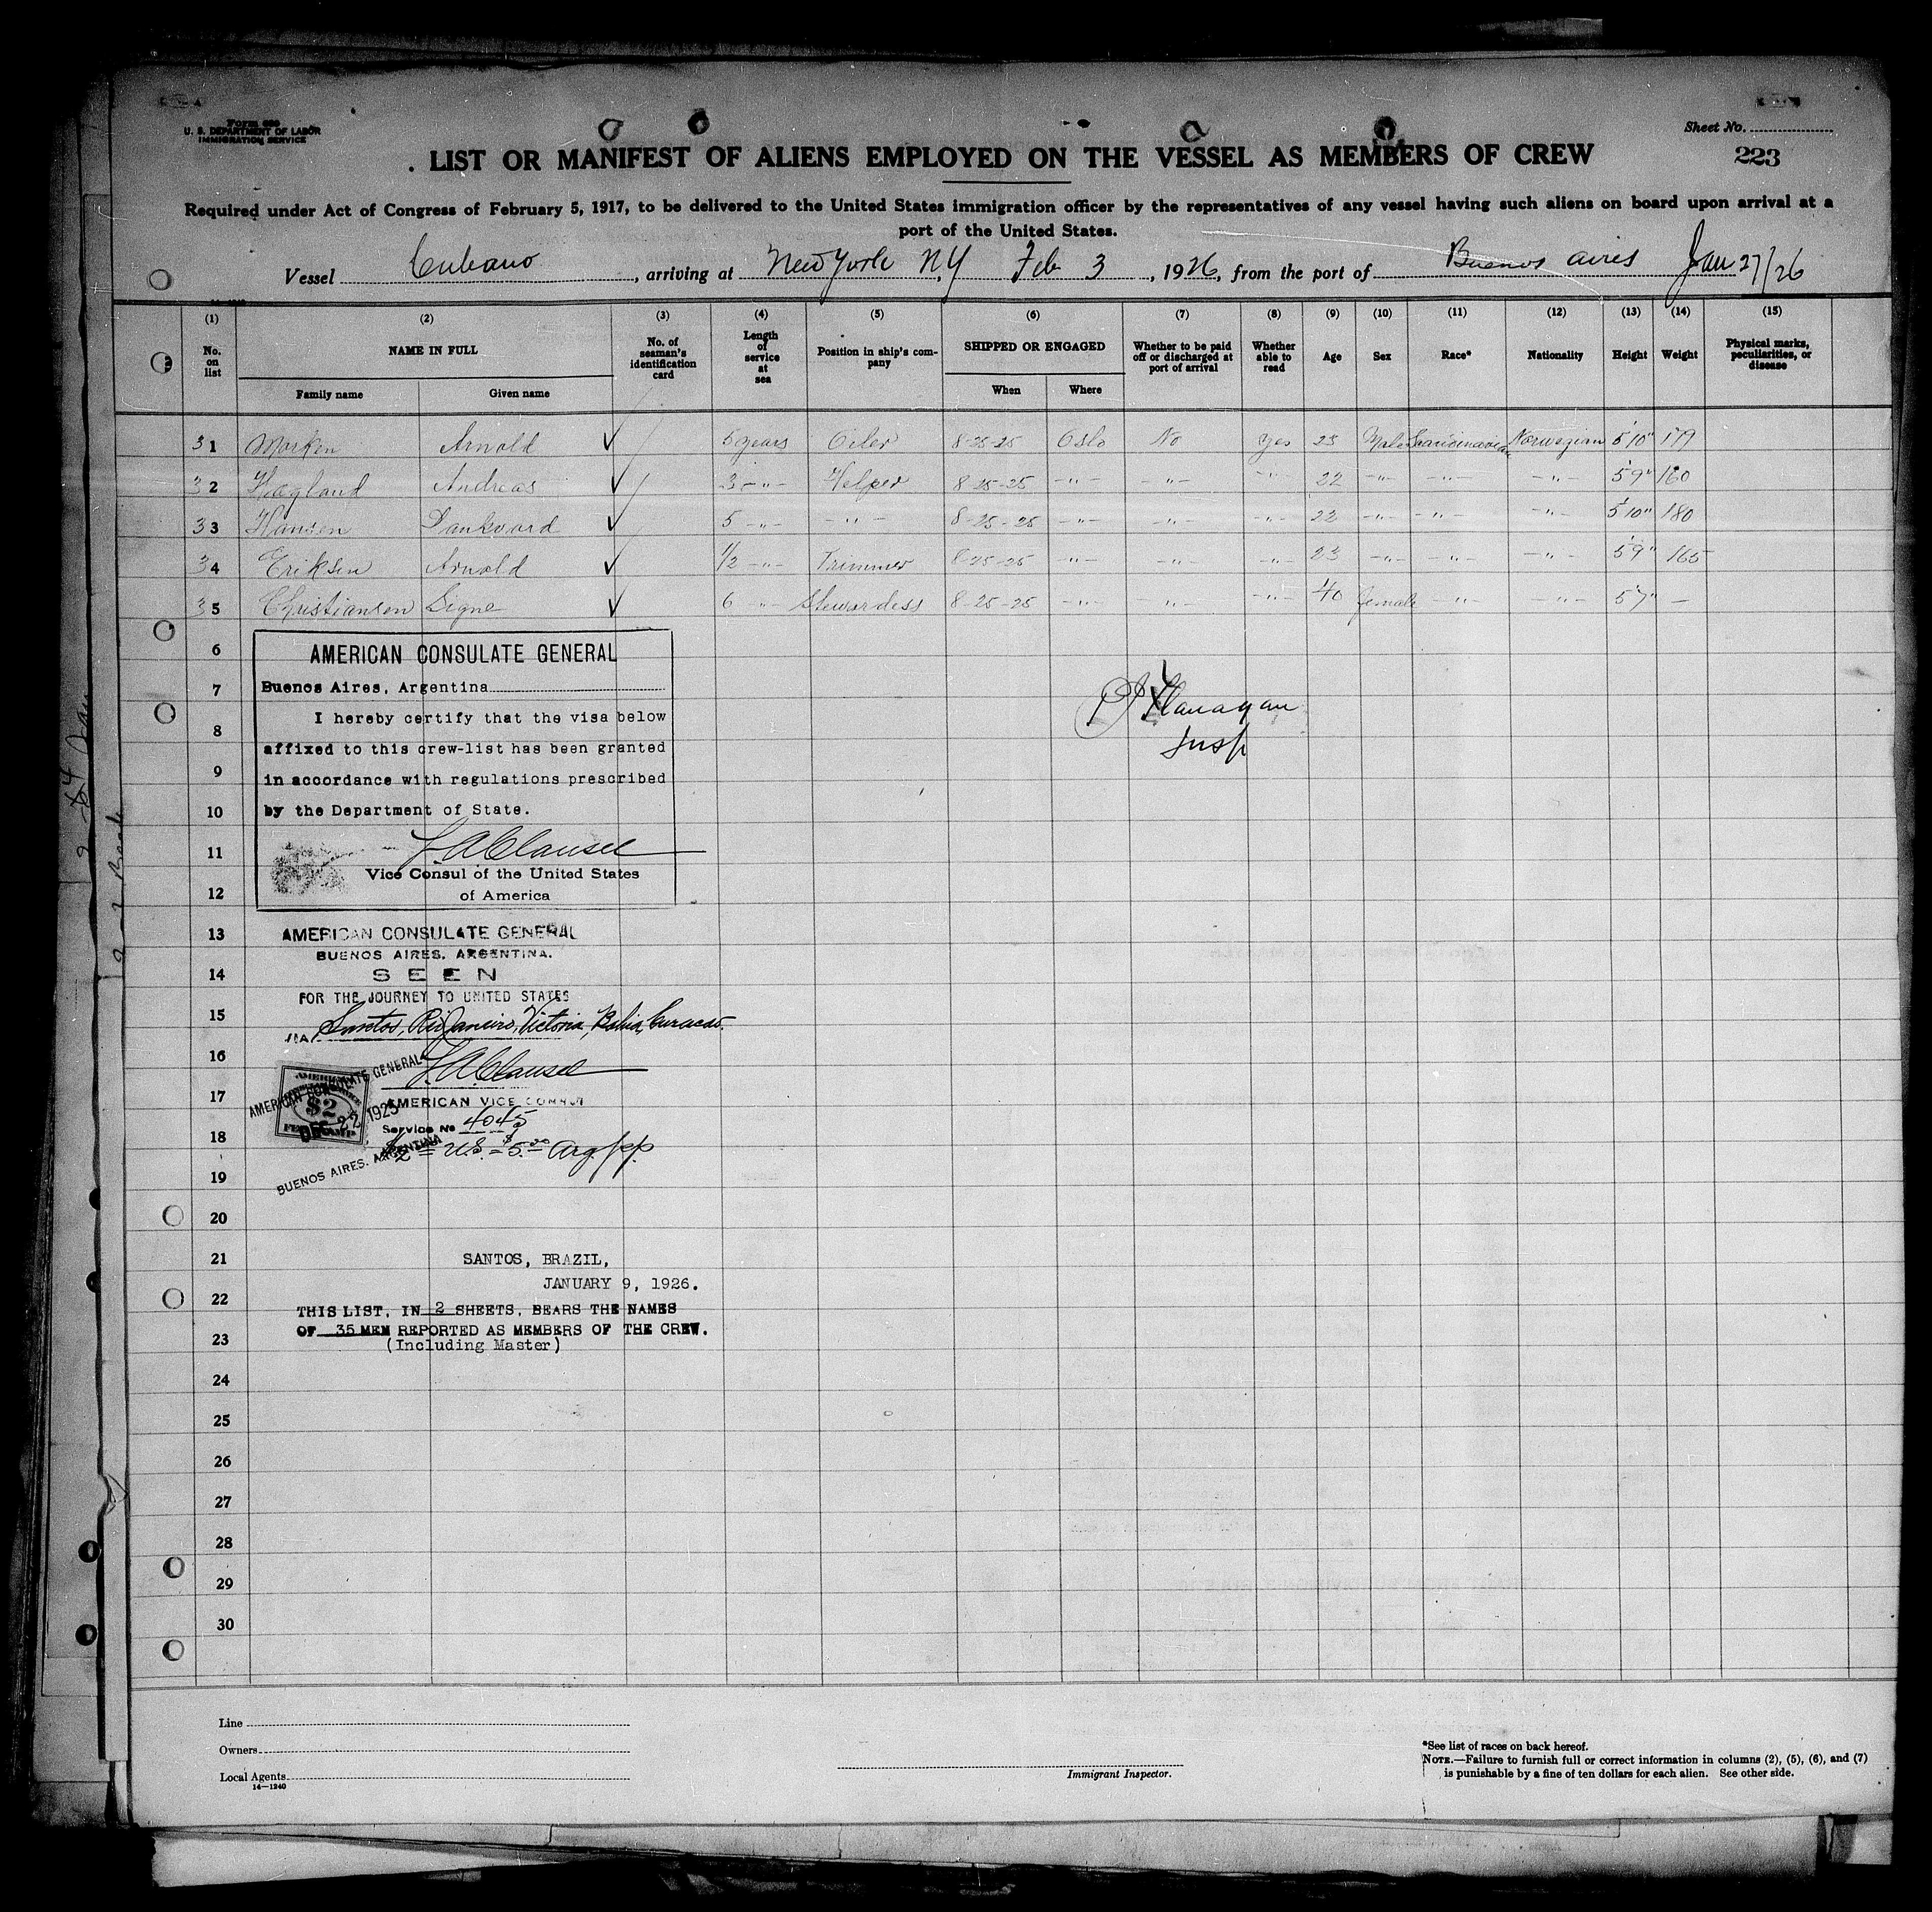 Form 680
U. S. DEPARTMENT OF LABOR
IMMIGRATION SERVICE
Sheet No.
223
LIST OR MANIFEST OF ALIENS EMPLOYED ON THE VESSEL AS MEMBERS OF CREW
Required under Act of Congress of February 5, 1917, to be delivered to the United States immigration officer by the representatives of any vessel having such aliens on board upon arrival at a
port of the United States.
Vessel Cubano, arriving at New York NY Feb 3, 1926, from the port of Buenos Aires Jan 27/26
(1) (2) (3) (4) (5) (6) (7) (8) (9) (10) (11) (12) (13) (14) (15)
No. on list NAME IN FULL No. of seaman's identification card Length of service at sea Position in ship's company SHIPPED OR ENGAGED Whether to be paid off or discharged at port of arrival Whether able to read Age Sex Race* Nationality Height Weight Physical marks, peculiarities, or disease
Family name Given name When Where
31 Morken Arnold 5 years Oiler 8-25-25 Oslo No Yes 23 Male Scandinavian Norwegian 5'10" 179
32 Hagland Andreas 3 -"- Helper 8-25-25 -"- -"- -"- 22 -"- -"- -"- 5'9" 160
33 Hansen Dankvard 5 -"- -"- 8-25-25 -"- -"- -"- 22 -"- -"- -"- 5'10" 180
34 Eriksen Arnold 1/2 -"- Trimmer 8-25-25 -"- -"- -"- 23 -"- -"- -"- 5'9" 165
35 Christiansen Signe 6 -"- Stewardess 8-25-25 -"- -"- -"- 40 female -"- -"- 5'7" -
6
AMERICAN CONSULATE GENERAL
7
Buenos Aires, Argentina
I hereby certify that the visa below
8
affixed to this crew-list has been granted
9
in accordance with regulations prescribed
10
by the Department of State.
P J Flanagan
Insp
11
J. A. Clausel
Vice Consul of the United States
12
of America
13
AMERICAN CONSULATE GENERAL
BUENOS AIRES, ARGENTINA.
14
SEEN
FOR THE JOURNEY TO UNITED STATES
15
VIA Santos, Rio Janeiro, Victoria, Bahia, Curacao.
16
J. A. Clausel
17
AMERICAN VICE CONSUL
Service No 4045
AMERICAN CONSULATE GENERAL
$2
DEC 22 1925
BUENOS AIRES. ARGENTINA
18
$2 = U.S. = $5.20 Arg. ppp
19
20
21
SANTOS, BRAZIL,
JANUARY 9, 1926.
22
THIS LIST, IN 2 SHEETS, BEARS THE NAMES
OF 35 MEN REPORTED AS MEMBERS OF THE CREW.
23
(Including Master)
24
25
26
27
28
29
30
Line
Owners
Local Agents
14—1240
Immigrant Inspector.
*See list of races on back hereof.
NOTE.—Failure to furnish full or correct information in columns (2), (5), (6), and (7)
is punishable by a fine of ten dollars for each alien. See other side.